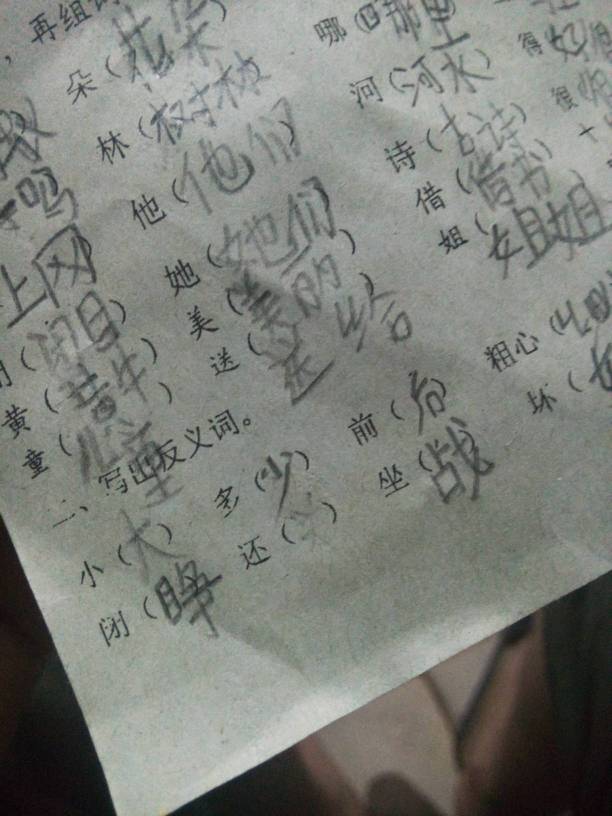 ，再组词
朵（花朵 哪（ 那里
林（树林 河（河水） 得（好
他（他们） 诗（古诗 很（
她（她们 借（借书） 十
上网
美（美丽） 姐（姐姐
闭目） 送（送给
黄（黄牛）
童（儿童 粗心（
二、写出反义词。
小（大 多（少） 前（后） 坏（
闭（睁 还（ ） 坐（战